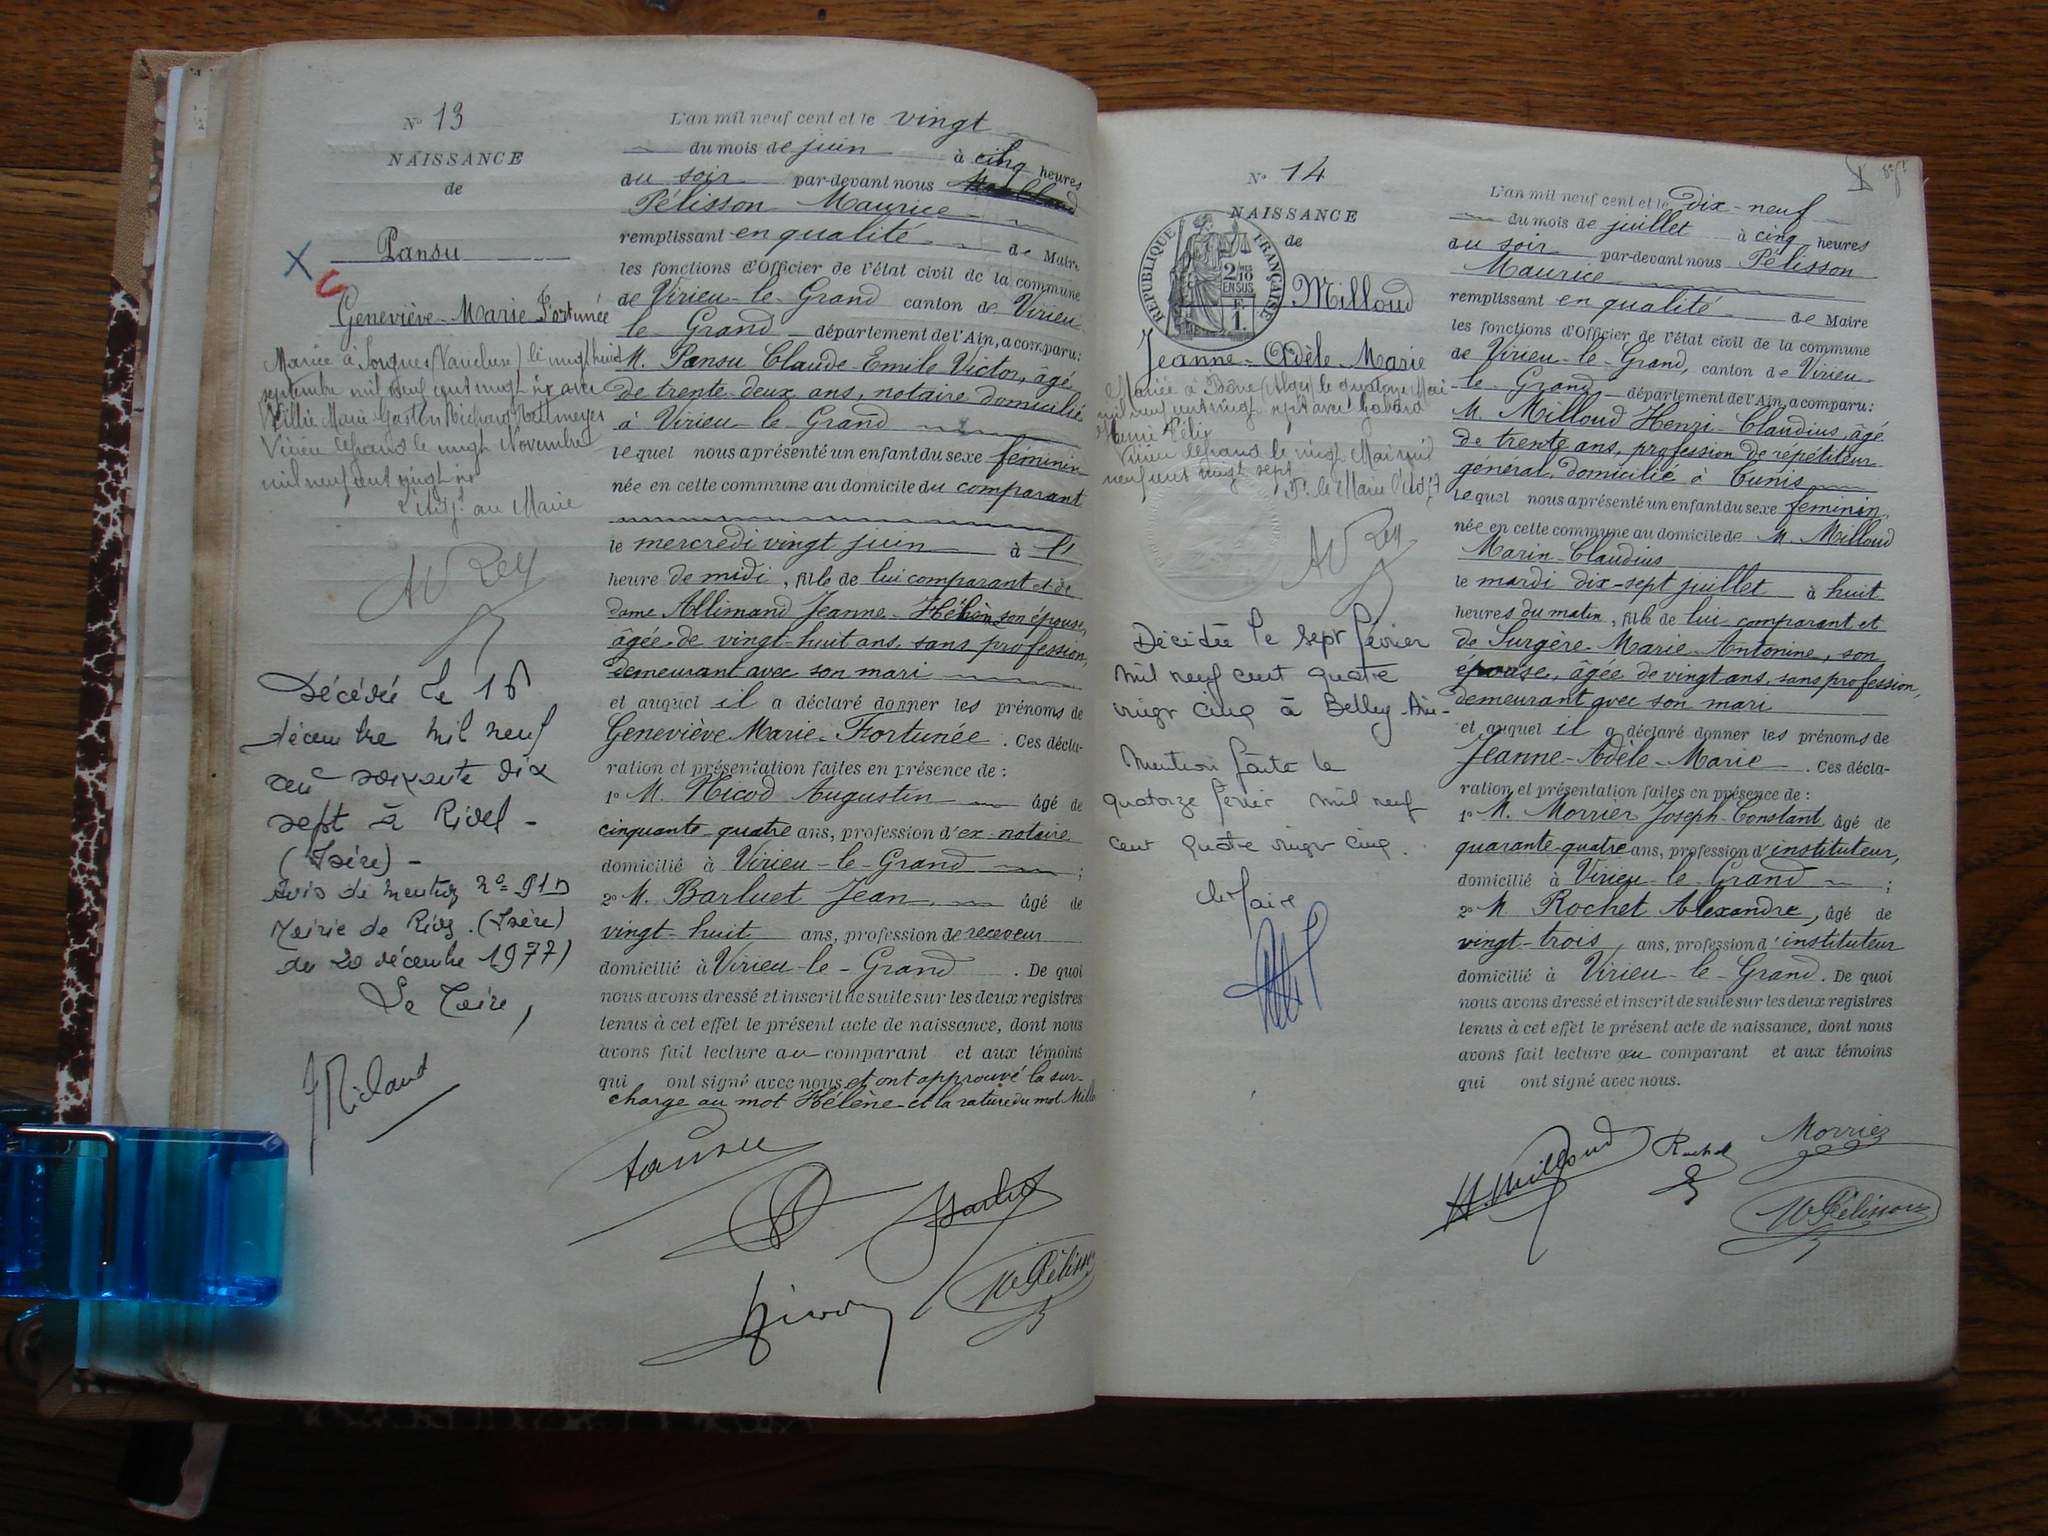 N° 13
NAISSANCE
de
Pansu
Geneviève-Marie Fortunée
Mariée à Sorgues (Vaucluse) le vingt huit
septembre mil neuf cent vingt six avec
Marie Gaston Richard
Virieu le grand le vingt Novembre
mil neuf cent vingt six
au Maire
AV Rey
Décédée le 16
décembre mil neuf
cent soixante dix
sept à Rives -
(Isère) -
Avis de mention n°
Mairie de Rives (Isère)
du 20 décembre 1977)
Le Maire,
L'an mil neuf cent et le vingt
du mois de juin à cinq heures
du soir par-devant nous
Pélisson Maurice
remplissant en qualité de Maire
les fonctions d'Officier de l'état civil de la commune
de Virieu-le-Grand canton de Virieu-
le-Grand département de l'Ain, a comparu:
M. Pansu Claude Emile Victor, âgé
de trente-deux ans, notaire domicilié
à Virieu le Grand
lequel nous a présenté un enfant du sexe féminin
née en cette commune au domicile du comparant
le mercredi vingt juin à l'
heure de midi, fille de lui comparant et de
dame Allimand Jeanne-Hélène son épouse,
âgée de vingt-huit ans, sans profession,
demeurant avec son mari
et auquel il a déclaré donner les prénoms de
Geneviève Marie-Fortunée. Ces décla-
ration et présentation faites en présence de :
1° M. Nicod Augustin âgé de
cinquante-quatre ans, profession d'ex-notaire
domicilié à Virieu-le-Grand ;
2° M. Barluet Jean âgé de
vingt-huit ans, profession de receveur
domicilié à Virieu-le-Grand. De quoi
nous avons dressé et inscrit de suite sur les deux registres
tenus à cet effet le présent acte de naissance, dont nous
avons fait lecture au comparant et aux témoins
qui ont signé avec nous et ont approuvé la sur-
charge au mot Hélène et la rature du mot Mill
Pansu
Barluet
Nicod
M Pélisson
N° 14
NAISSANCE
de
RÉPUBLIQUE FRANÇAISE
2/10 EN SUS
F. 1.
Milloud
Jeanne-Adèle-Marie
Mariée à Bône (Alger) le quatorze Mai
mil neuf cent vingt sept avec
Henri Félix
Virieu le grand le vingt Mai mil
neuf cent vingt sept
le Maire
AV Rey
Décédée le sept février
mil neuf cent quatre
vingt cinq à Belley-Ain-
Mention faite le
quatorze février mil neuf
cent quatre vingt cinq.
Le Maire
L'an mil neuf cent et le dix-neuf
du mois de juillet à cinq heures
du soir par-devant nous Pélisson
Maurice
remplissant en qualité de Maire
les fonctions d'Officier de l'état civil de la commune
de Virieu-le-Grand, canton de Virieu-
le-Grand département de l'Ain, a comparu:
M. Milloud Henri-Claudius, âgé
de trente ans, profession de repétiteur
général, domicilié à Tunis
lequel nous a présenté un enfant du sexe féminin,
née en cette commune au domicile de M. Milloud
Marin-Claudius
le mardi dix-sept juillet à huit
heures du matin, fille de lui comparant et
de Surgère-Marie-Antonine, son
épouse, âgée de vingt ans, sans profession,
demeurant avec son mari
et auquel il a déclaré donner les prénoms de
Jeanne-Adèle-Marie. Ces décla-
ration et présentation faites en présence de :
1° M. Morrier Joseph-Constant âgé de
quarante-quatre ans, profession d'instituteur,
domicilié à Virieu-le-Grand ;
2° M Rochet Alexandre, âgé de
vingt-trois ans, profession d'instituteur
domicilié à Virieu-le-Grand. De quoi
nous avons dressé et inscrit de suite sur les deux registres
tenus à cet effet le présent acte de naissance, dont nous
avons fait lecture au comparant et aux témoins
qui ont signé avec nous.
H. Milloud
Rochet
Morrier
M Pélisson